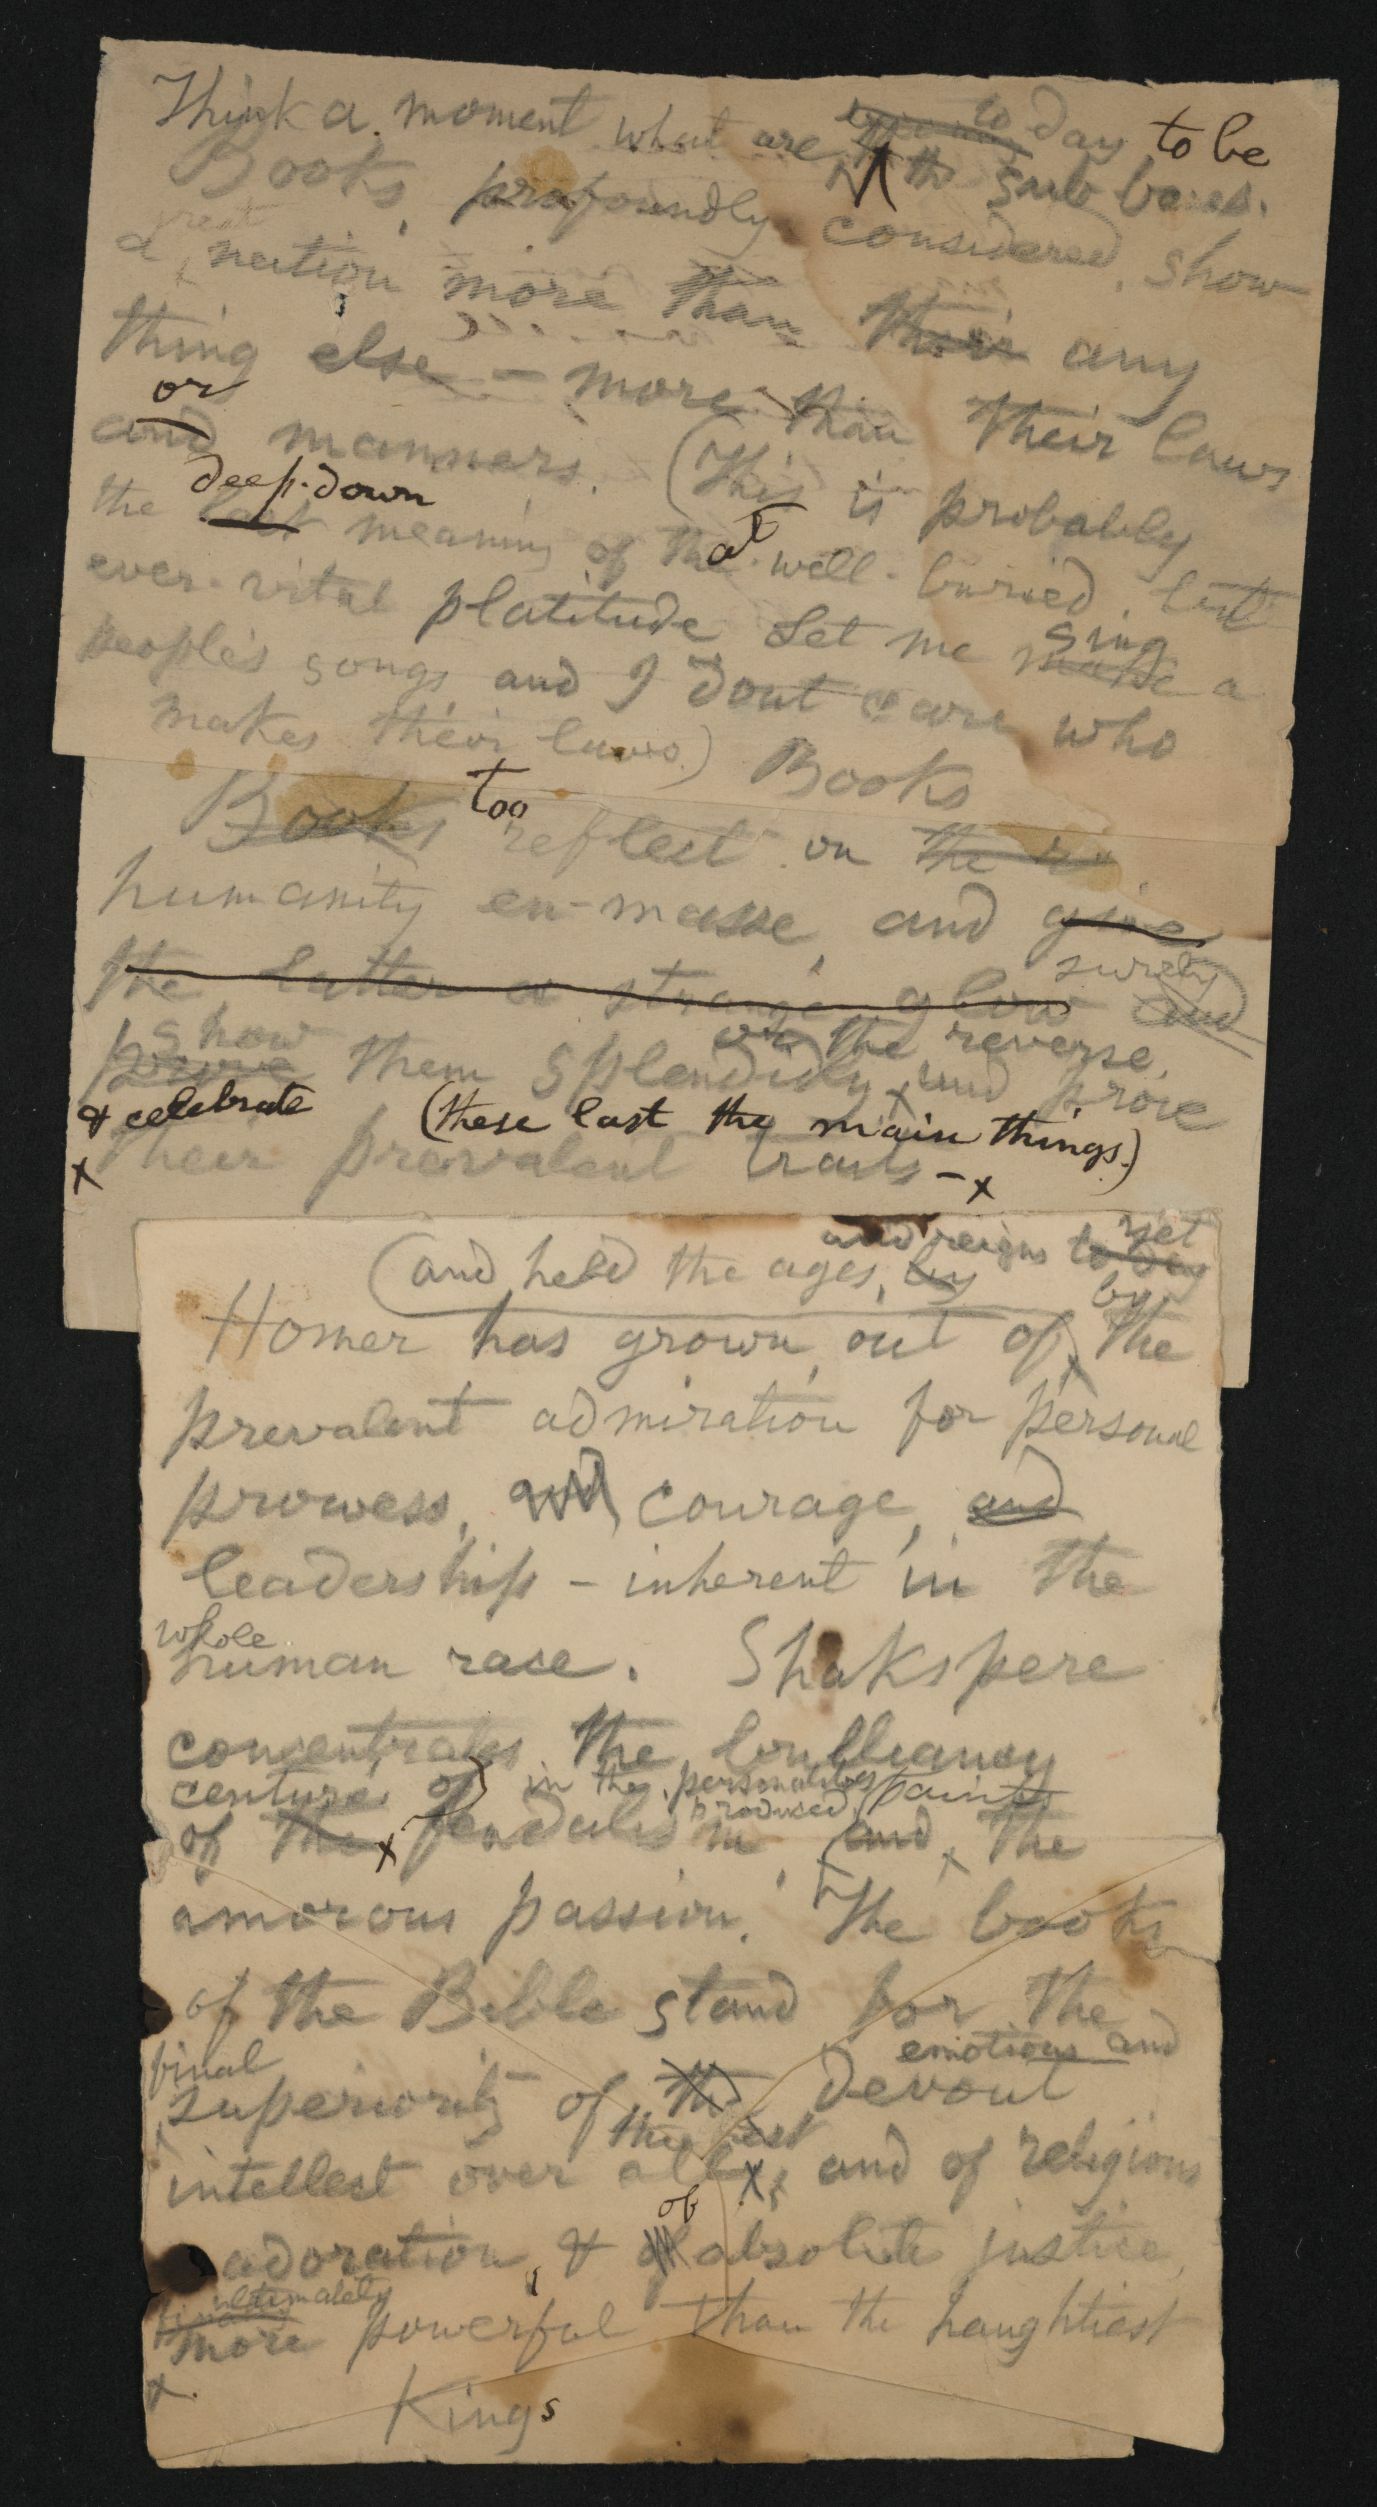 Think a moment what are to day to be
the sub bases.
Books, profoundly considered, show
great
a nation more than their any
thing else – more than their laws
or
and manners. (This is probably
deep-down
the last meaning of the at well-buried, but
ever-vital platitude Let me sing
make a
people's songs and I dont care who
makes their laws.) Books
Books too reflect on the
humanity en-masse, and give
the latter a strange glow surely and
show or the reverse,
prove them splendidly, and prove
& celebrate (these last the main things.)
x their prevalent traits – x
and reigns to day yet
(and held the ages, by
Homer has grown out of, by the
prevalent admiration for personal
prowess, and courage, and
leadership – inherent in the
whole
human race. Shakspere
concentrates the brilliancy
centuries of in the personalities paints
produced,
of the x feudalism, and, the
amorous passion. The books
of the Bible stand for the
final emotions and
superiority of the devout
the rest
intellect over all x, and of religious
of
adoration, & of absolute justice,
ultimately
finally
more powerful than the haughtiest
x.
Kings